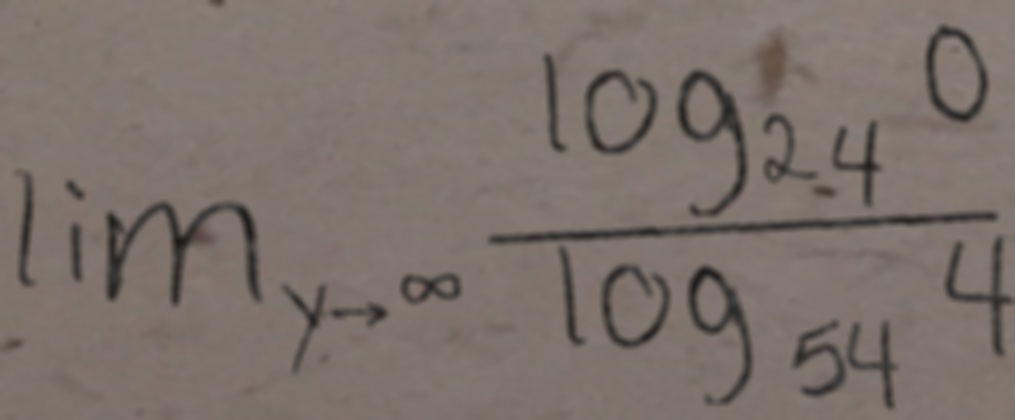 lim y→∞ log 24 0
log 54 4